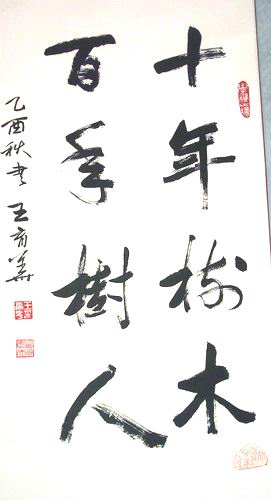 十年树木
百年樹人
乙酉秋書 王育華